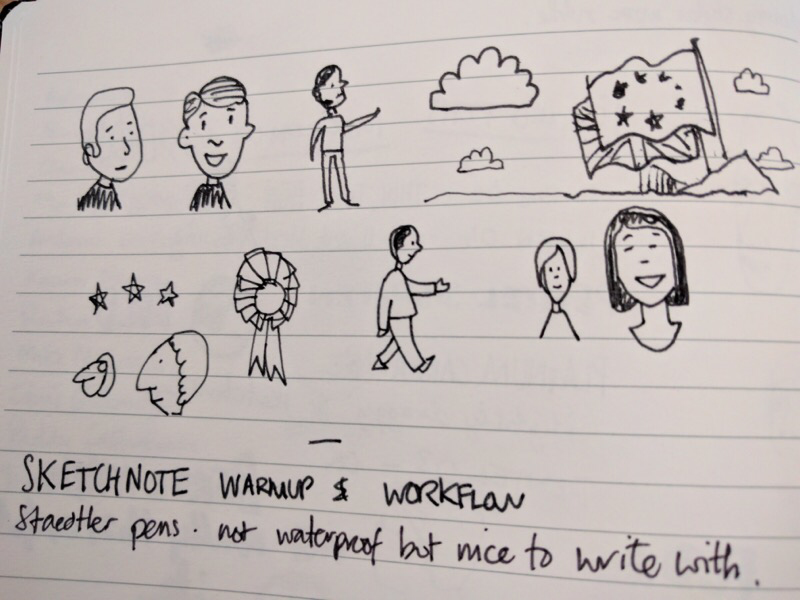 SKETCHNOTE WARMUP & WORKFLOW
Staedtler pens. not waterproof but nice to write with.